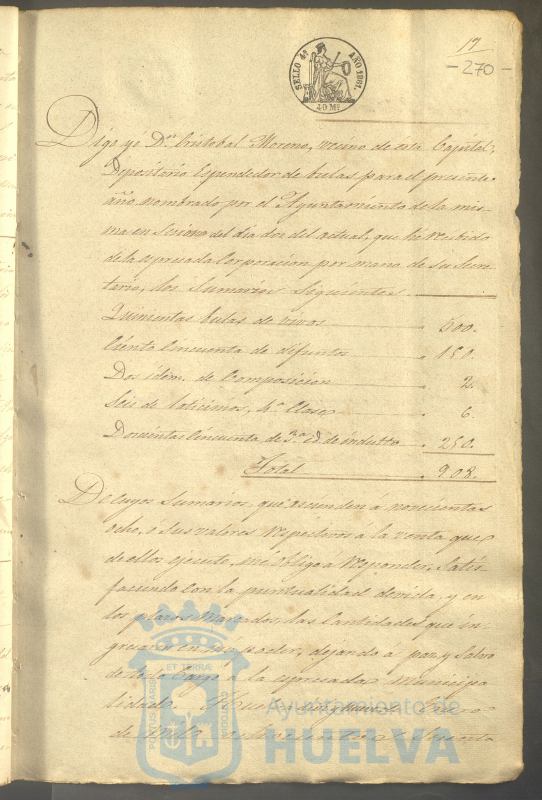 17
-270-
SELLO 4º AÑO 1861.
40 Ms
Digo yo Dn. Cristobal Moreno, vecino de esta Capital,
Depositario Espendedor de bulas para el presente
año nombrado por el Ayuntamiento de la mis-
ma en Sesion del dia dos del actual, que hé recibido
de la espresada Corporacion por mano de su Secre-
tario, los Sumarios Siguientes
Quinientas bulas de vivos 500.
Ciento Cincuenta de difuntos 150.
Dos idem. de Composicion 2.
Seis de laticinios, 4ª Clase 6.
Doscientas Cincuenta de 3ª id. de indulto 250.
Total 908.
De cuyos Sumarios, que ascienden á novecientos
ocho, ó sus valores respectivos á la venta que
de ellos ejecute, me obligo á responder, Satis
faciendo con la puntualidad devida, y en
los plazos marcados, las Cantidades que in-
gresaren en mi poder, dejando á paz y Salvo
de todo Cargo á la espresada Municipa
lidad. Huelva Enero
de mil ochocientos Sesenta
PORTUS MARIS ET TERRAE CUSTODIA
Ayuntamiento de
HUELVA